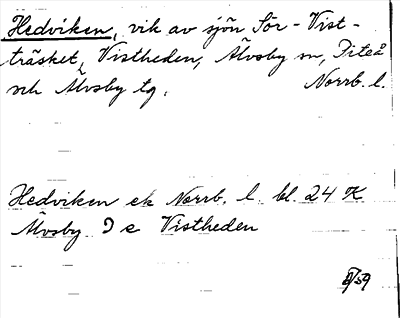 Hedviken, vik av sjön Sör-Vist-
träsket, Vistheden, Älvsby sn, Piteå
och Älvsby tg. Norrb. l.
Hedviken ek Norrb. l. bl. 24 K
Älvsby I e Vistheden